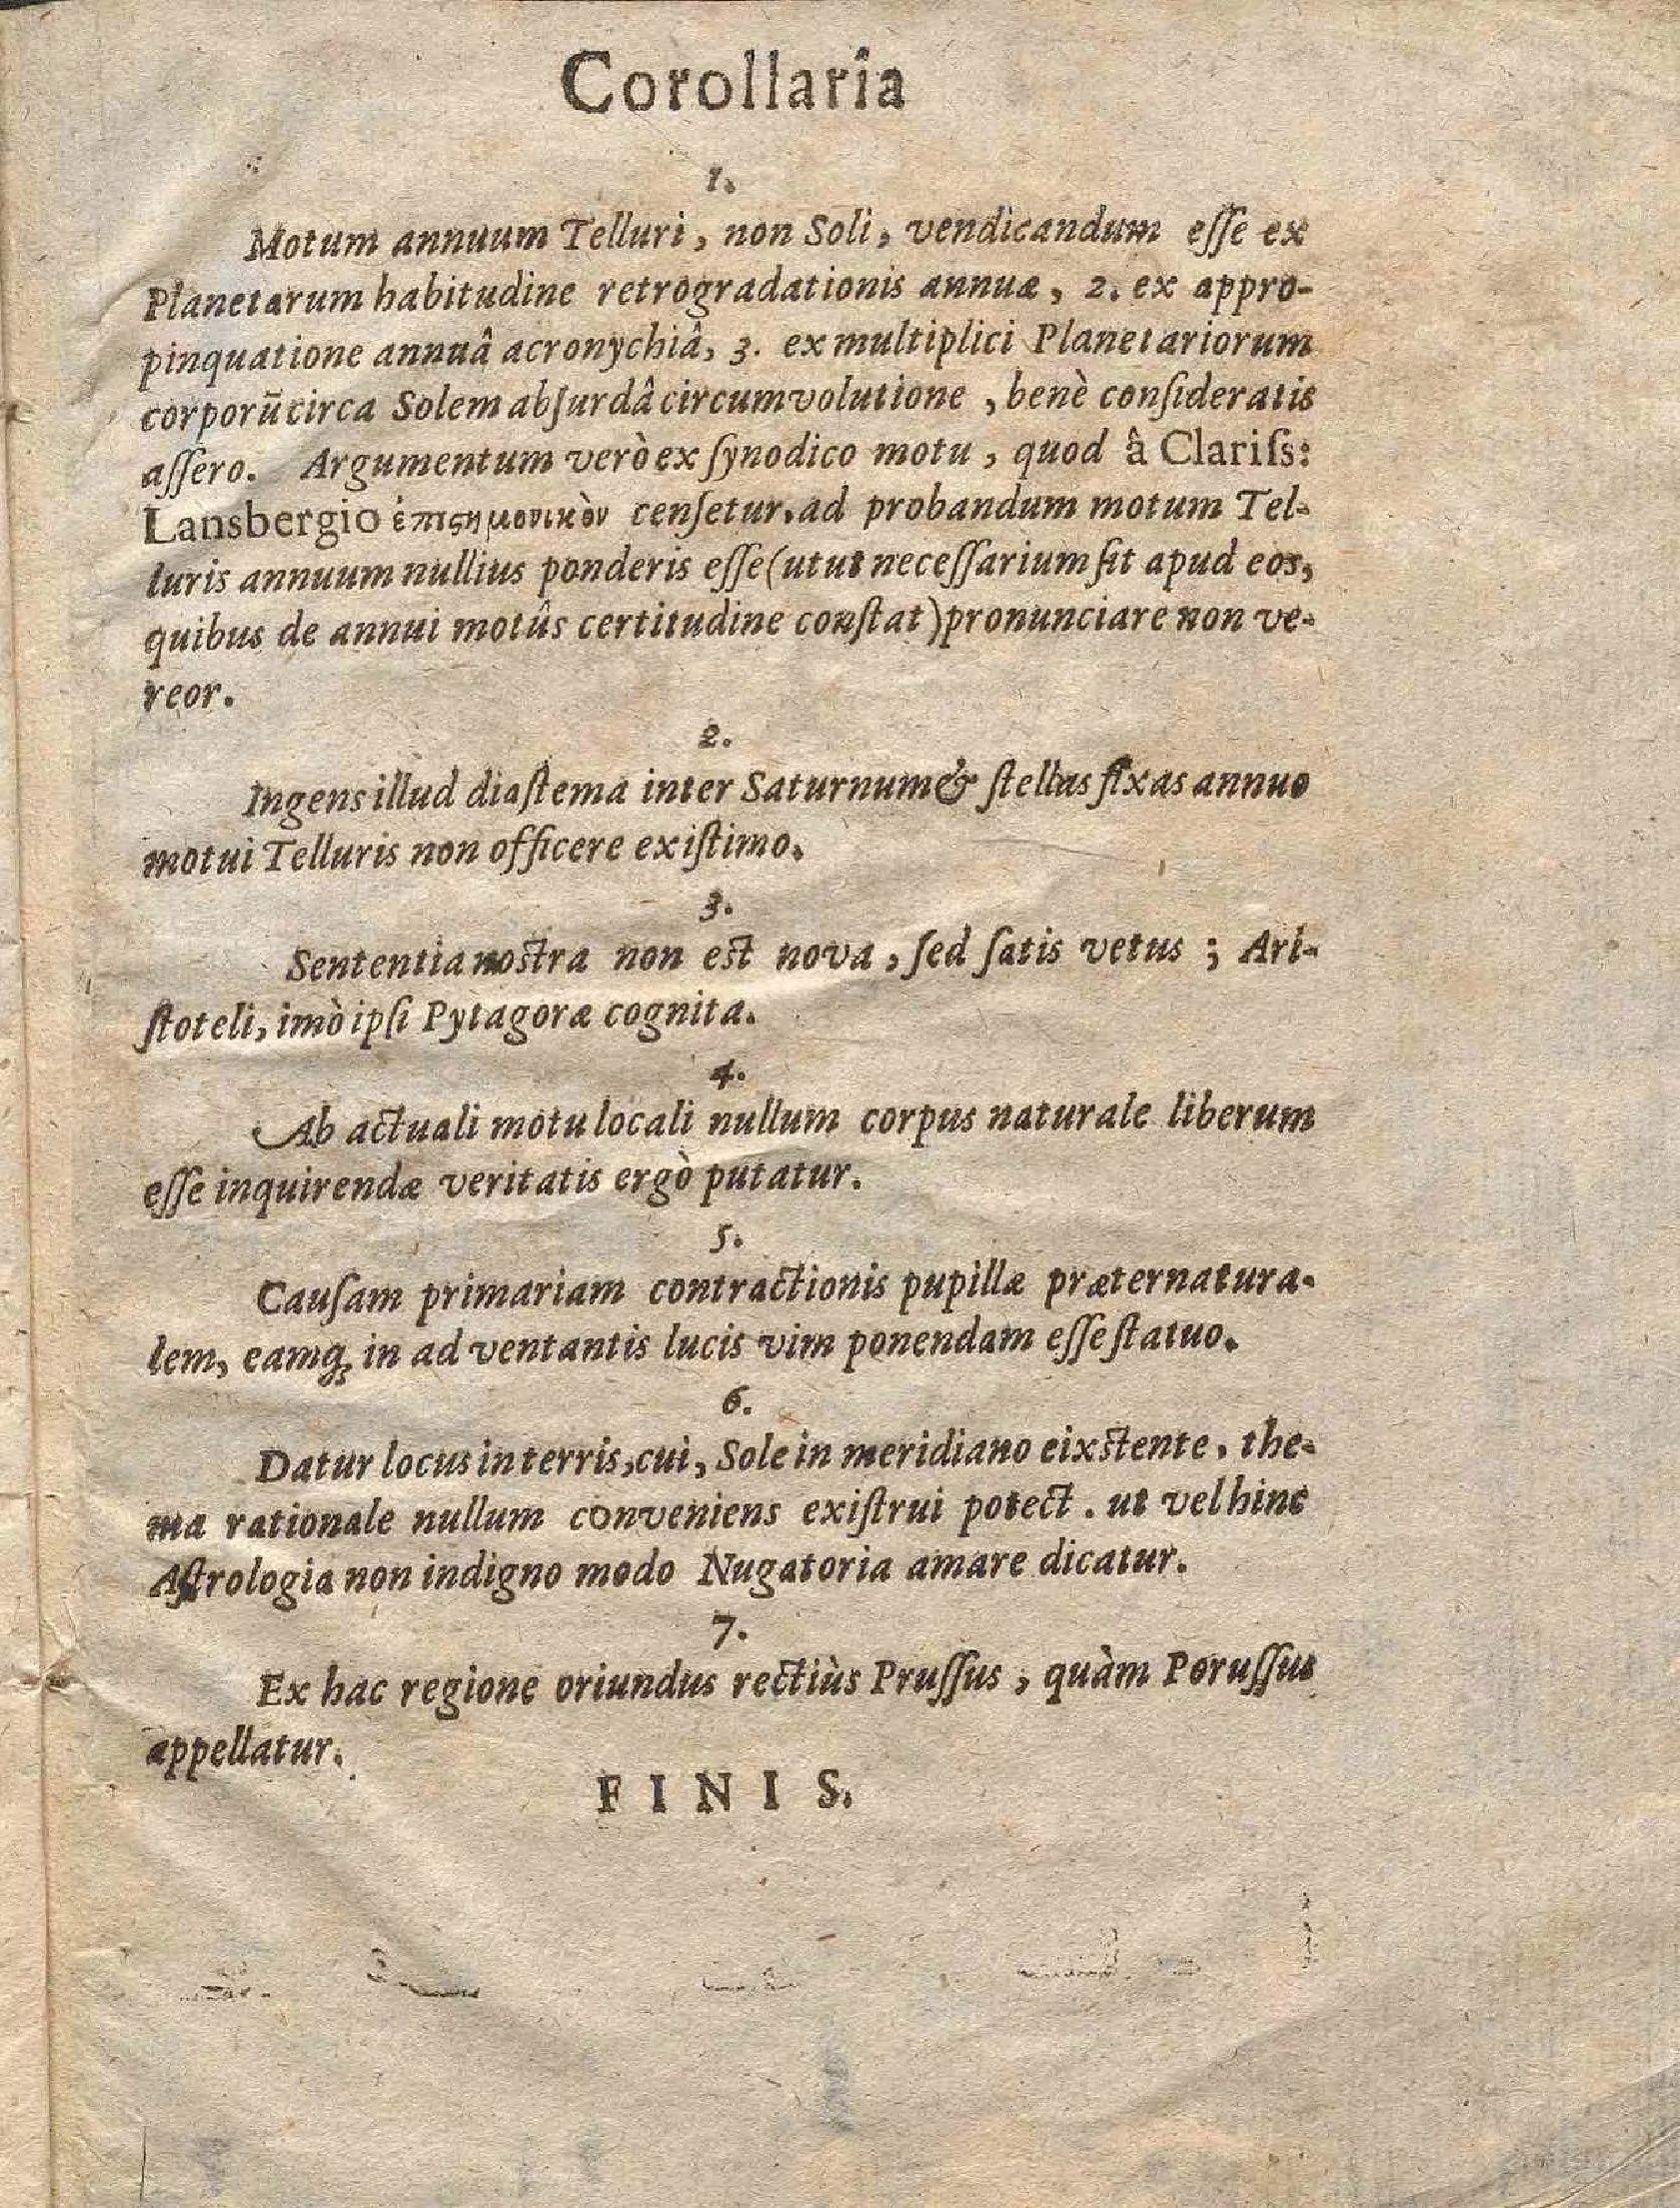 Corollaria
1.
Motum annuum Telluri, non Soli, vendicandum eſſe ex
Planetarum habitudine retrogradationis annuæ, 2. ex appro-
pinquatione annuâ acronychiâ, 3. ex multiplici Planetariorum
corporū circa Solem abſurdâ circumvolutione, benè conſideratis
aſſero. Argumentum verò ex ſynodico motu, quod â Clariſs:
Lansbergio ἐπιϛημονικὸν cenſetur, ad probandum motum Tel-
luris annuum nullius ponderis eſſe (utut neceſſarium ſit apud eos,
quibus de annui motûs certitudine conſtat) pronunciare non ve-
reor.
2.
Ingens illud diaſtema inter Saturnum & ſtellas fixas annuo
motui Telluris non officere exiſtimo.
3.
Sententia nostra non est nova, ſed ſatis vetus; Ari-
ſtoteli, imò ipſi Pytagoræ cognita.
4.
Ab actuali motu locali nullum corpus naturale liberum
eſſe inquirendæ veritatis ergò putatur.
5.
Cauſam primariam contractionis pupillæ præternatura-
lem, eamq; in adventantis lucis vim ponendam eſſe ſtatuo.
6.
Datur locus in terris, cui, Sole in meridiano eixstente, the-
ma rationale nullum conveniens exiſtrui potect. ut vel hinc
Aſtrologia non indigno modo Nugatoria amare dicatur.
7.
Ex hac regione oriundus rectiùs Pruſſus, quàm Poruſſus
appellatur.
FINIS.